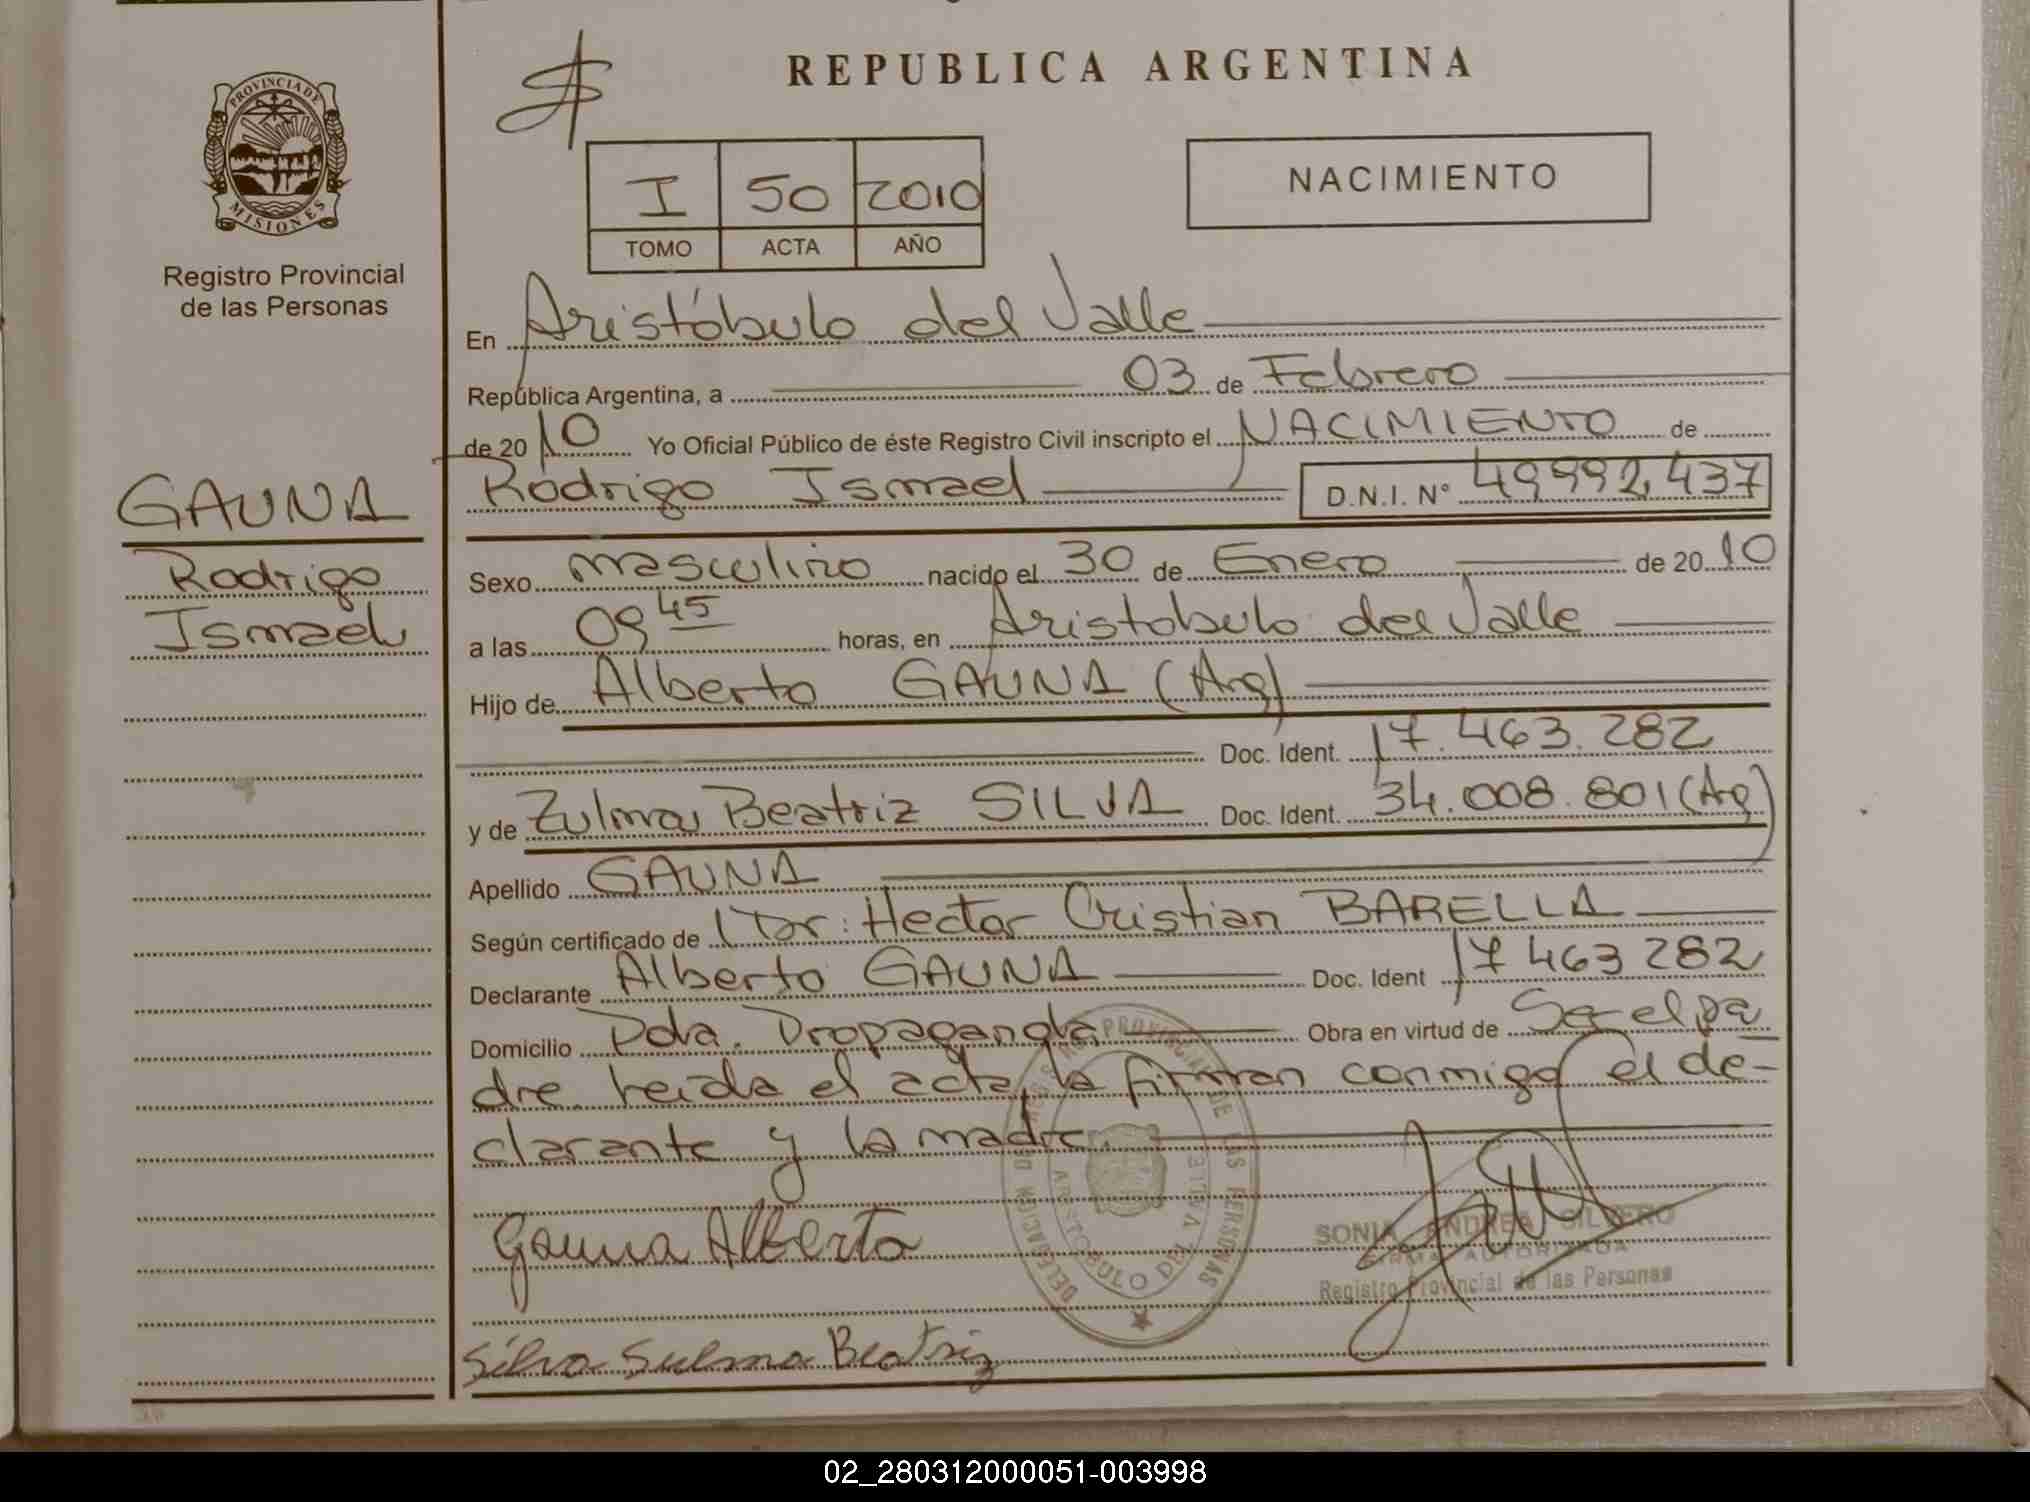 REPUBLICA ARGENTINA
PROVINCIA DE
MISIONES
Registro Provincial
de las Personas
I 50 2010
TOMO ACTA AÑO
NACIMIENTO
En Aristóbulo del Valle
República Argentina, a 03 de Febrero
de 2010 Yo Oficial Público de éste Registro Civil inscripto el NACIMIENTO de
Rodrigo Ismael D.N.I. N° 49992437
GAUNA
Rodrigo
Ismael
Sexo masculino nacido el 30 de Enero de 2010
a las 09 45 horas, en Aristobulo del Valle
Hijo de Alberto GAUNA (Arg)
Doc. Ident. 17.463.282
y de Zulma Beatriz SILVA Doc. Ident. 34.008.801 (Arg)
Apellido GAUNA
Según certificado de Dr: Hector Cristian BARELLA
Declarante Alberto GAUNA Doc. Ident 17463282
Domicilio Pda. Propaganda Obra en virtud de Ser el pa
dre leida el acta, la firman conmigo el de-
clarante y la madre.
Gauna Alberto
Silva Sulma Beatriz
PROVINCIAL DE LAS PERSONAS
ARISTOBULO DEL VALLE
SONIA ANDREA SILVERO
FIRMA AUTORIZADA
Registro Provincial de las Personas
02_280312000051-003998